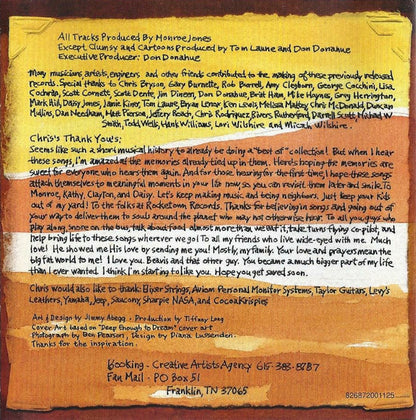 All Tracks Produced By Monroe Jones
Except, Clumsy and Cartoons Produced by Tom Laune and Don Donahue
Executive Producer: Don Donahue
Many musicians, artists, engineers and other friends contributed to the making of these previously released
records. Special thanks to Chris Bryson, Gary Burnette, Rob Burrell, Amy Clayborn, George Cocchini, Lisa
Cochran, Scott Cornett, Scott Dente, Jim Dineen, Don Donahue, Britt Ham, Mike Haynes, Greg Herrington,
Mark Hill, Daisy Jones, Jamie Kiner, Tom Laune, Bryan Lenox, Ken Lewis, Melissa Mattey, Chris McDonald, Duncan
Mullins, Dan Needham, Matt Pierson, Jeffery Roach, Chris Rodriguez, Rivers Rutherford, Darrell Scott, Michael W.
Smith, Todd Wells, Hank Williams, Lori Wilshire and Micah Wilshire.
Chris's Thank You's:
Seems like such a short musical history to already be doing a "best of" collection! But when I hear
these songs, I'm amazed at the memories already tied up in them. Here's hoping the memories are
sweet for everyone who hears them again. And for those hearing for the first time, I hope these songs
attach themselves to meaningful moments in your life now, so you can revisit them later and smile. To
Monroe, Kathy, Clayton, and Daisy. Let's keep making music and being neighbors. Just keep your kids
out of my yard! To the folks at Rocketown Records. Thanks for believing in songs and going out of
your way to deliver them to souls around the planet who may not otherwise hear. To all you guys who
play along, snore on the bus, talk about food almost more than we eat it, take turns flying co-pilot, and
help bring life to these songs wherever we go! To all my friends who live wide-eyed with me. Much
love! He showed me His love by sending me you! Mostly, my family. Your love and prayers mean the
big fat world to me! I love you. Beavis and that other guy. You became a much bigger part of my life
than I ever wanted. I think I'm starting to like you. Hope you get saved soon.
Chris would also like to thank: Elixer Strings, Aviom Personal Monitor Systems, Taylor Guitars, Levy's
Leathers, Yamaha, Jeep, Saucony, Sharpie NASA, and Cocoa Krispies
Art & Design by Jimmy Abegg • Production by Tiffany Long
Cover Art based on "Deep Enough to Dream" cover art
Photography by Ben Pearson, Design by Diana Lussenden.
Thanks for the inspiration.
Booking - Creative Artists Agency 615-383-8787
Fan Mail - PO Box 51
Franklin, TN 37065
826872001125